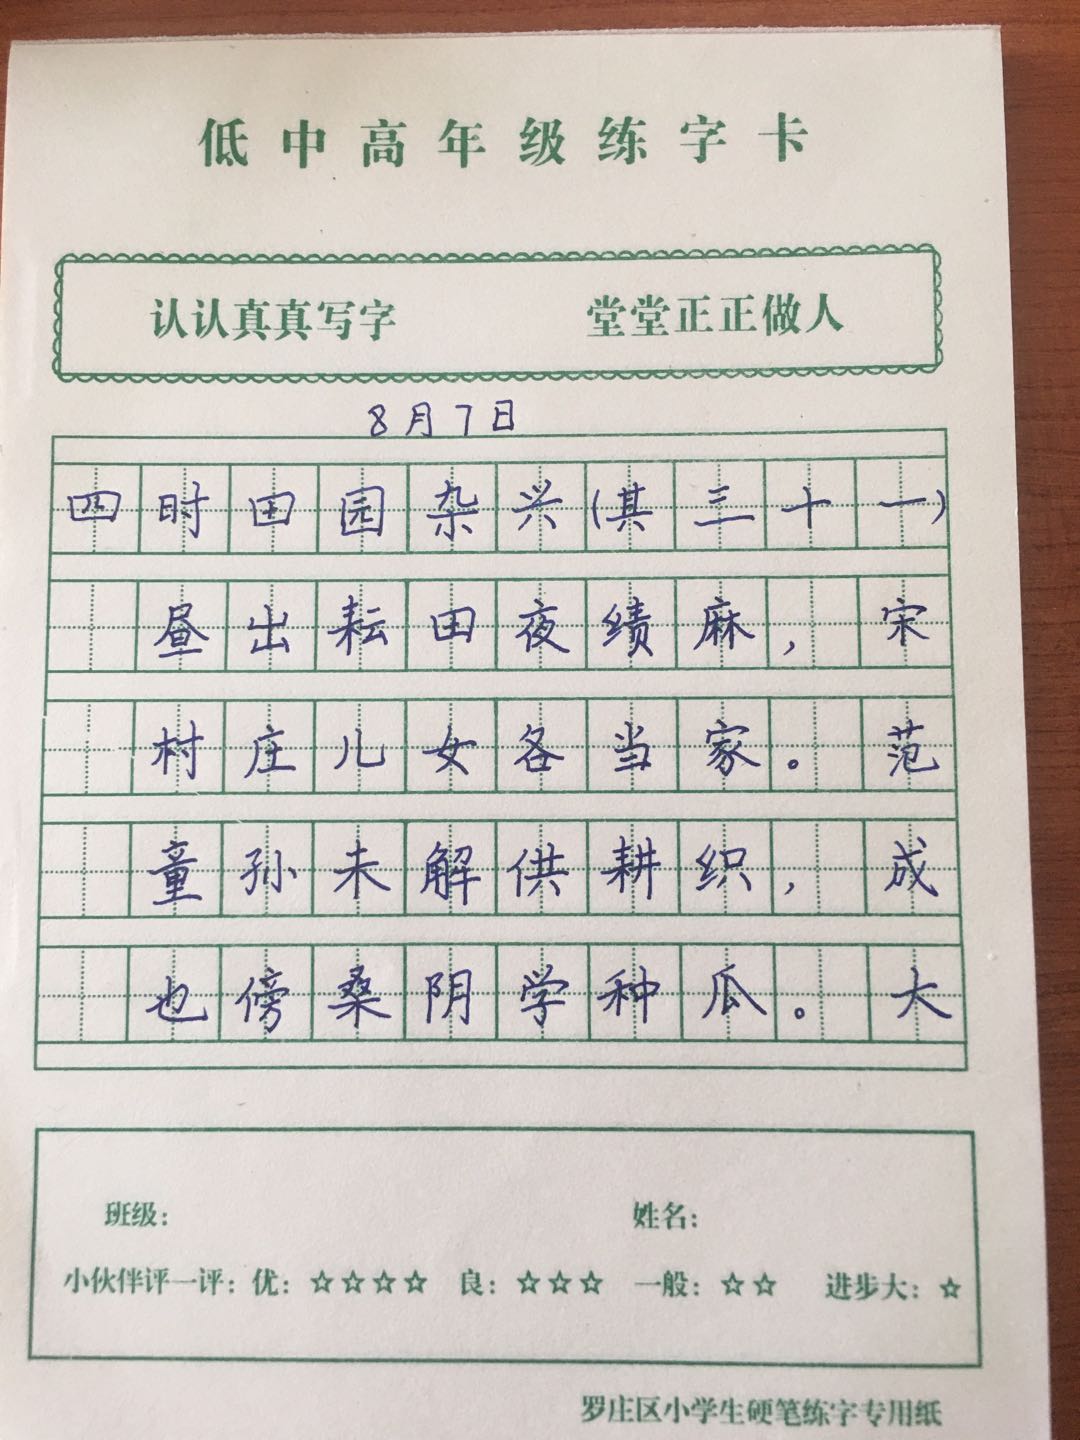 低中高年级练字卡
认认真真写字 堂堂正正做人
8月7日
四时田园杂兴(其三十一)
昼出耘田夜绩麻, 宋
村庄儿女各当家。 范
童孙未解供耕织, 成
也傍桑阴学种瓜。 大
班级: 姓名:
小伙伴评一评:优:☆☆☆☆ 良:☆☆☆ 一般:☆☆ 进步大:☆
罗庄区小学生硬笔练字专用纸